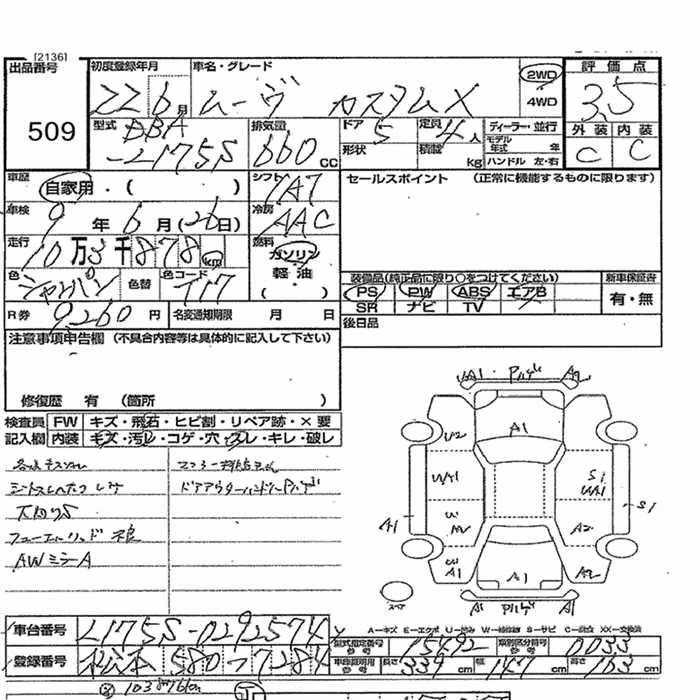 [2136]
出品番号 509
初度登録年月 22 6月
車名・グレード ムーヴ カスタムX
2WD
4WD
評価点 3.5
外装 C 内装 C
型式 DBA
-L175S
排気量 660 cc
ドア 5
形状
定員 4人
積載 kg
ディーラー・並行
モデル年式 年
ハンドル 左・右
車歴 自家用・( )
シフト 7AT
車検 9年6月(26日)
冷房 AAC
走行 10万3千878km
燃料 ガソリン
軽・油
( )
色 シャンパン 色替
色コード T17
R券 9,260円
名変通知期限 月 日
セールスポイント (正常に機能するものに限ります)
装備品(純正品に限り○をつけてください)
PS PW ABS エアB
SR ナビ TV
新車保証書
有・無
後日品
注意事項申告欄 (不具合内容等は具体的に記入して下さい)
修復歴 有 (箇所 )
検査員記入欄
FW キズ・飛石・ヒビ割・リペア跡・×要
内装 キズ・汚レ・コゲ・穴・スレ・キレ・破レ
フューエルリッド不良
AWミラーA
ドアアウターハンドルPハゲ
WA1 Pハゲ A2
A1
U2
WA1
S1
WA1
A1
S1
A2
A1
A1
A2
A1 Pハゲ A1
スペア
車台番号 L175S-0292574
登録番号 松本 580 7284
A-キズ E-エクボ U-凹み W-補修跡 S-サビ C-腐食 XX-交換済
型式指定番号 参考 15492
類別区分番号 参考 0033
車検証明用 参考 長さ 339cm 幅 147cm 高さ 163cm